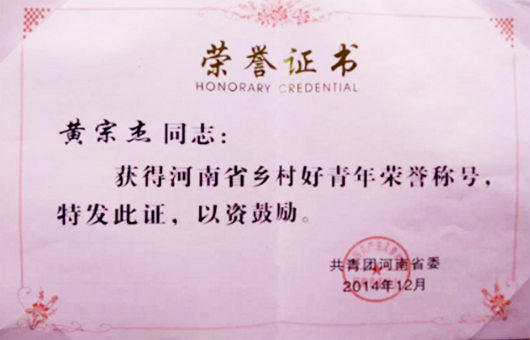 荣誉证书
HONORARY CREDENTIAL
黄宗杰同志：
获得河南省乡村好青年荣誉称号，
特发此证，以资鼓励。
共青团河南省委
2014年12月